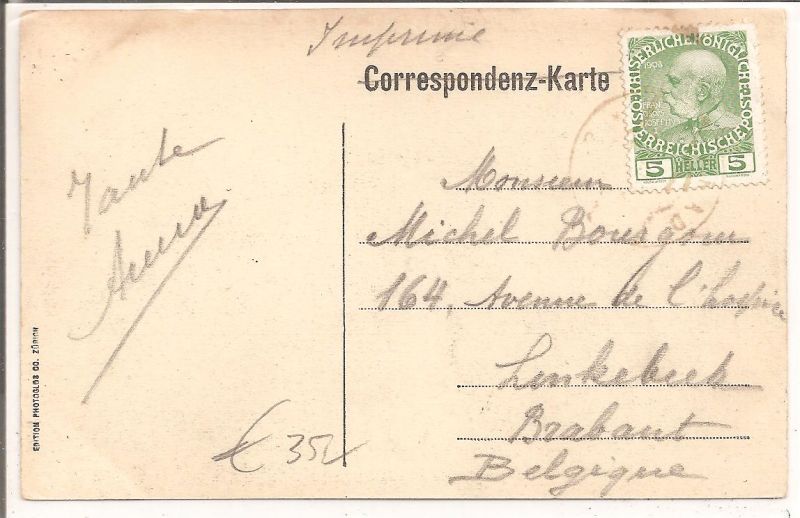 Imprimé
Correspondenz-Karte
KAISERLICHE KÖNIGLICHE ÖSTERREICHISCHE POST
1908
FRANZ
JOSEPH I
5 HELLER 5
Tante
Anna
Monsieur
Michel Bourgom
164, Avenue de l'hospice
Linkebeek
Brabant
Belgique
€ 35
EDITION PHOTOGLOB CO. ZÜRICH